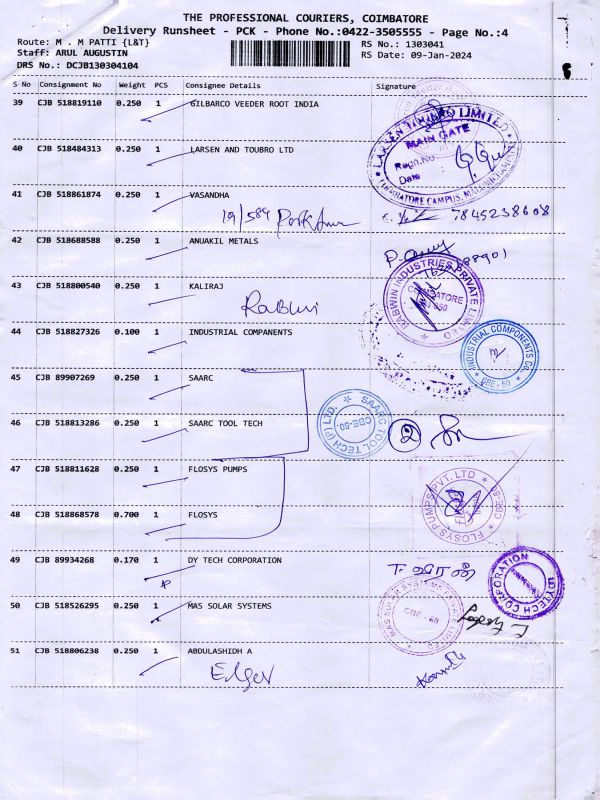 THE PROFESSIONAL COURIERS, COIMBATORE
Delivery Runsheet - PCK - Phone No.:0422-3505555 - Page No.:4
Route: M . M PATTI {L&T}
RS No.: 1303041
Staff: ARUL AUGUSTIN
RS Date: 09-Jan-2024
DRS No.: DCJB130304104
S No Consignment No Weight PCS Consignee Details Signature
39 CJB 518819110 0.250 1 GILBARCO VEEDER ROOT INDIA
40 CJB 518484313 0.250 1 LARSEN AND TOUBRO LTD
LIMITED
MAIN GATE
Regn.No
Date :
COIMBATORE CAMPUS,
41 CJB 518861874 0.250 1 VASANDHA
19/589 7845238608
42 CJB 518688588 0.250 1 ANUAKIL METALS
43 CJB 518800540 0.250 1 KALIRAJ
RABWIN INDUSTRIES PRIVATE LIMITED
COIMBATORE
44 CJB 518827326 0.100 1 INDUSTRIAL COMPANENTS
INDUSTRIAL COMPONENTS Co
CBE - 50
45 CJB 89907269 0.250 1 SAARC
46 CJB 518813286 0.250 1 SAARC TOOL TECH
SAARC TOOL TECH (P) LTD.
CBE-50.
2
47 CJB 518811628 0.250 1 FLOSYS PUMPS
48 CJB 518868578 0.700 1 FLOSYS
FLOSYS PUMPS PVT. LTD
49 CJB 89934268 0.170 1 DY TECH CORPORATION
DYTECH CORPORATION
50 CJB 518526295 0.250 1 MAS SOLAR SYSTEMS
MAS SOLAR SYSTEMS PRIVATE LIMITED
CBE - 50
51 CJB 518806238 0.250 1 ABDULASHIDH A